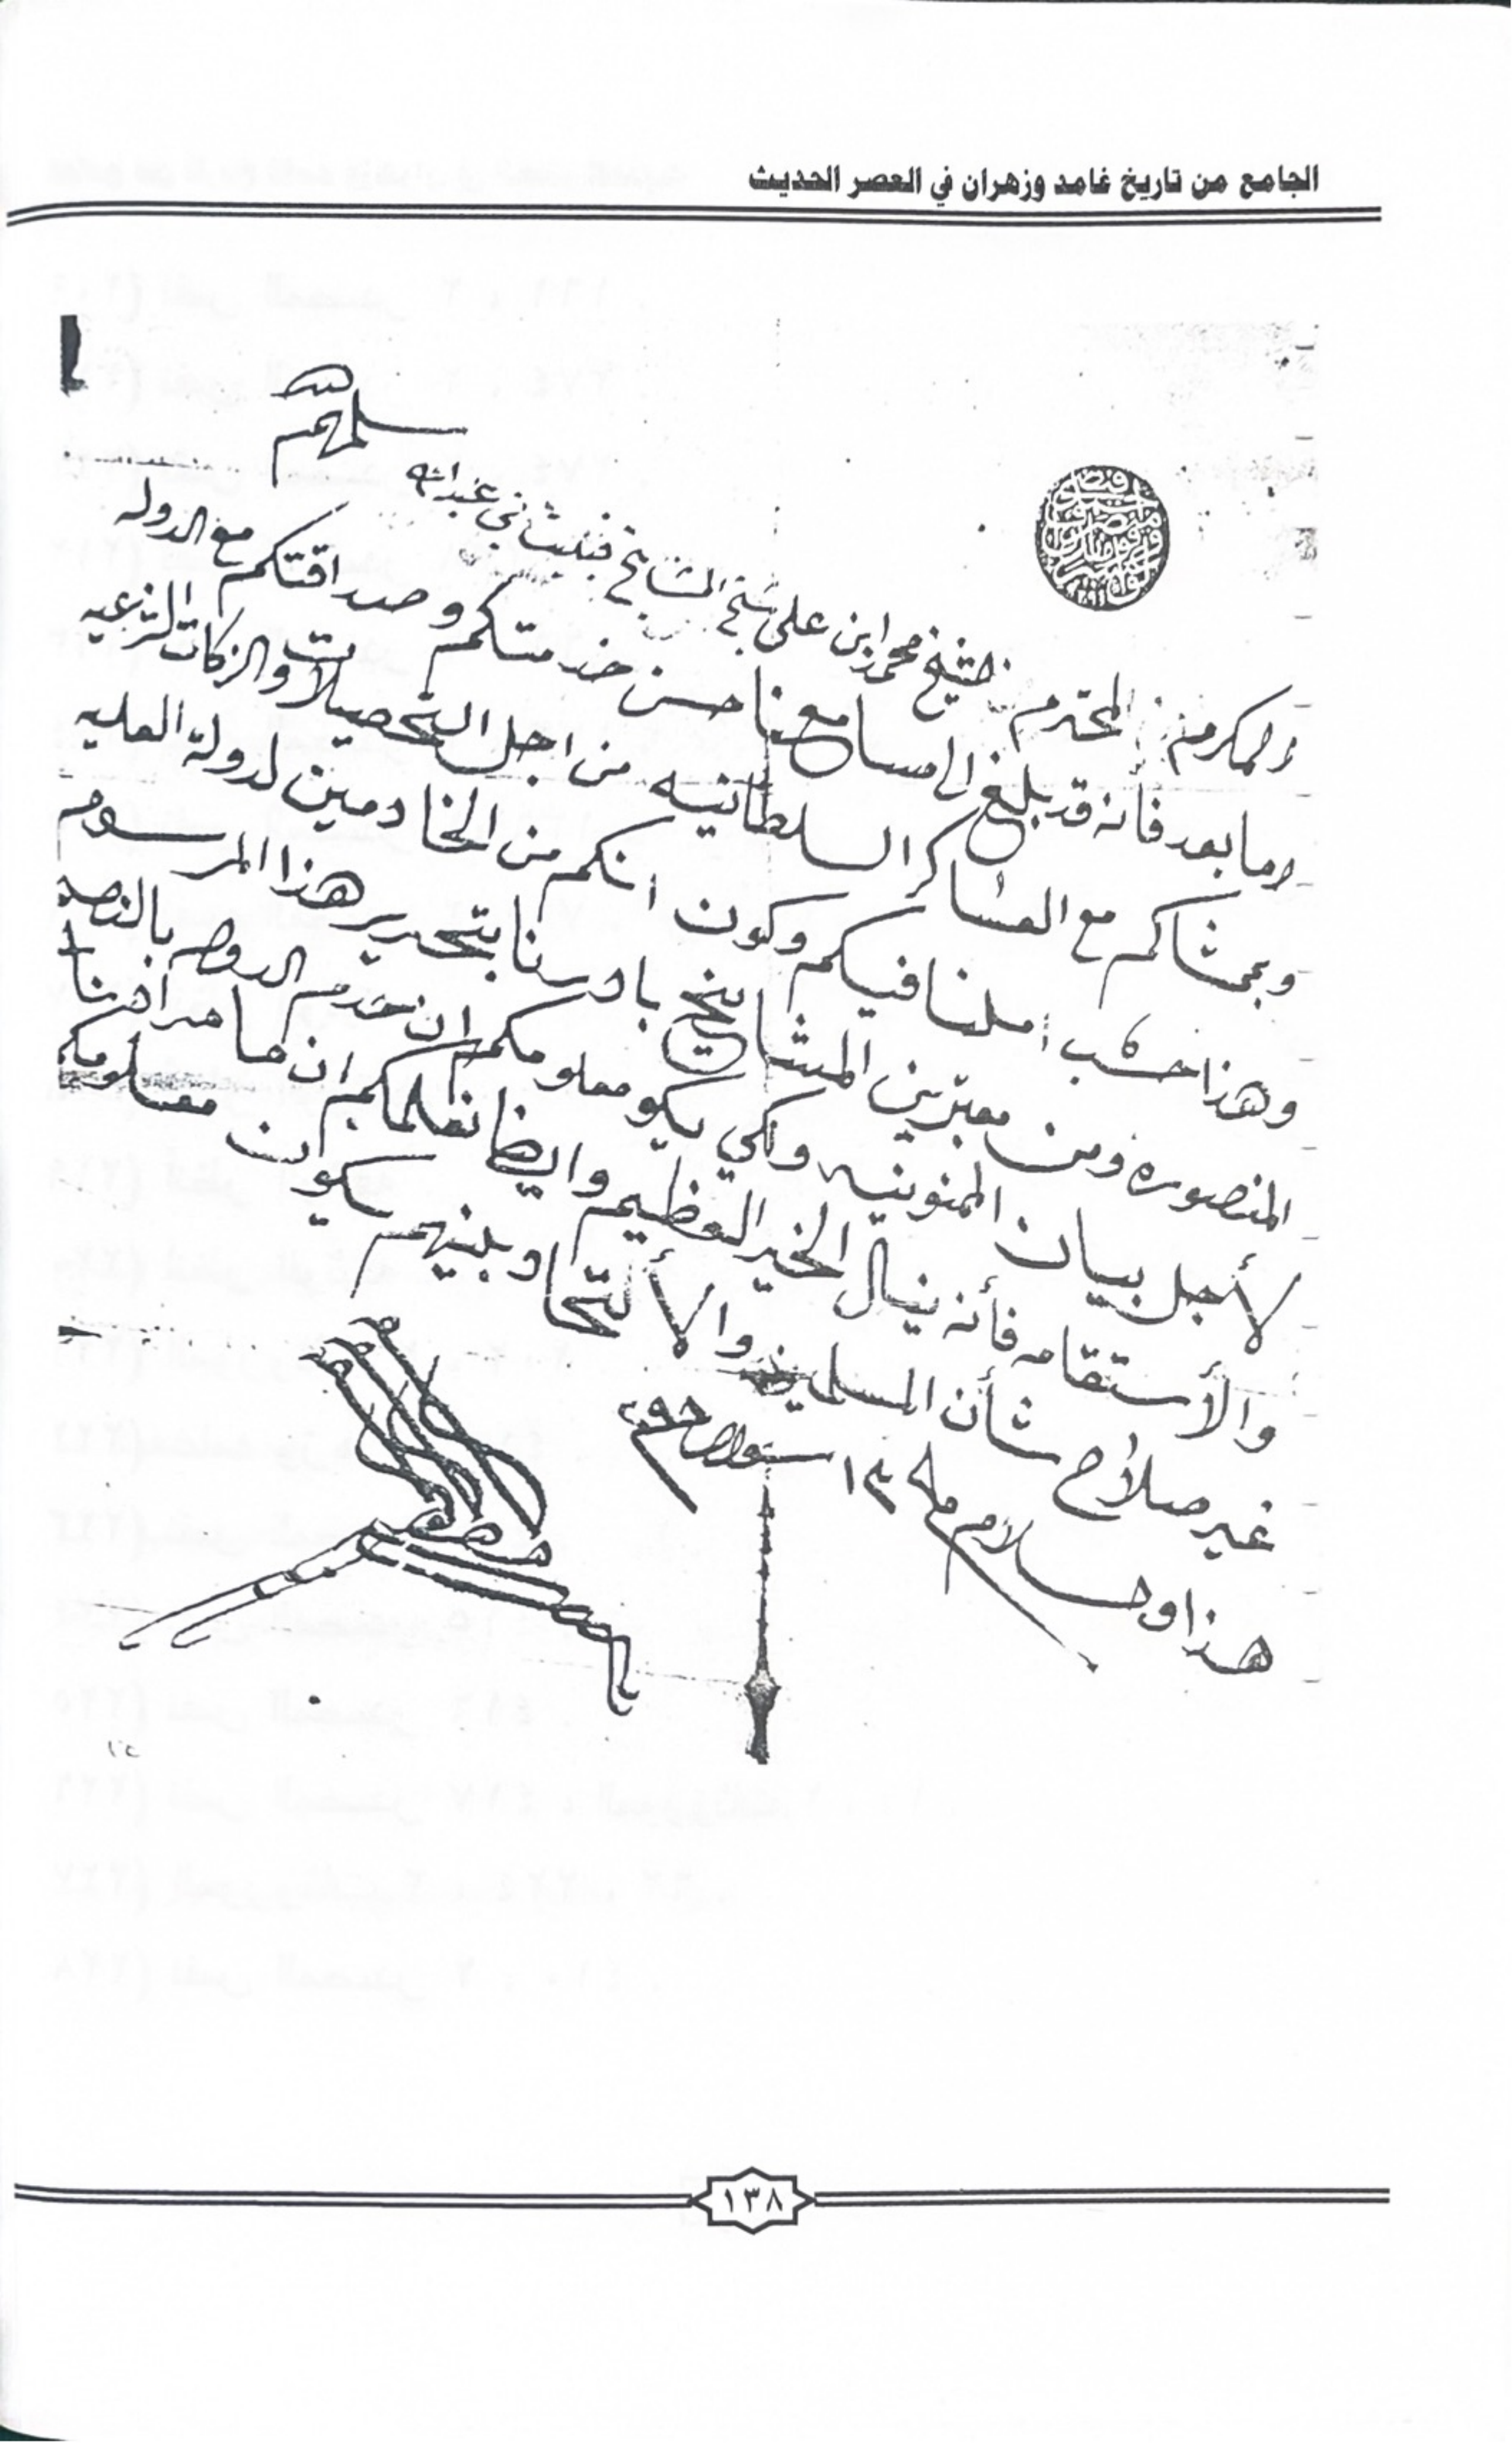 الجامع من تاريخ غامد وزهران في العصر الحديث
سلمه الله
المكرم المحترم الشيخ محمد ابن علي شيخ المشايخ بني عبدالله
اما بعد فانه قد بلغ الى مسامعنا حسن خدمتكم وصداقتكم مع الدوله
وبمشاكم مع العساكر السلطانيه من اجل التحصيلات والزكات الشرعيه
وهذا حسب املنا فيكم وكون انكم من الخادمين لدولة العليه
المنصوره ومن معتبرين المشايخ بادرنا بتحرير هذا المرسوم
لأجل بيان الممنونيه ولكي يكو معلومكم ان خدم الدوله بالنصح
والأستقامه فأنه ينال الخير العظيم وايضا نعلمكم ان ما مرادنا
غير صلاح شأن المسلمين والألتحا وبينهم يكون معلومكم
هذا والسلام ١٣ ٢٩٨
١٣٨